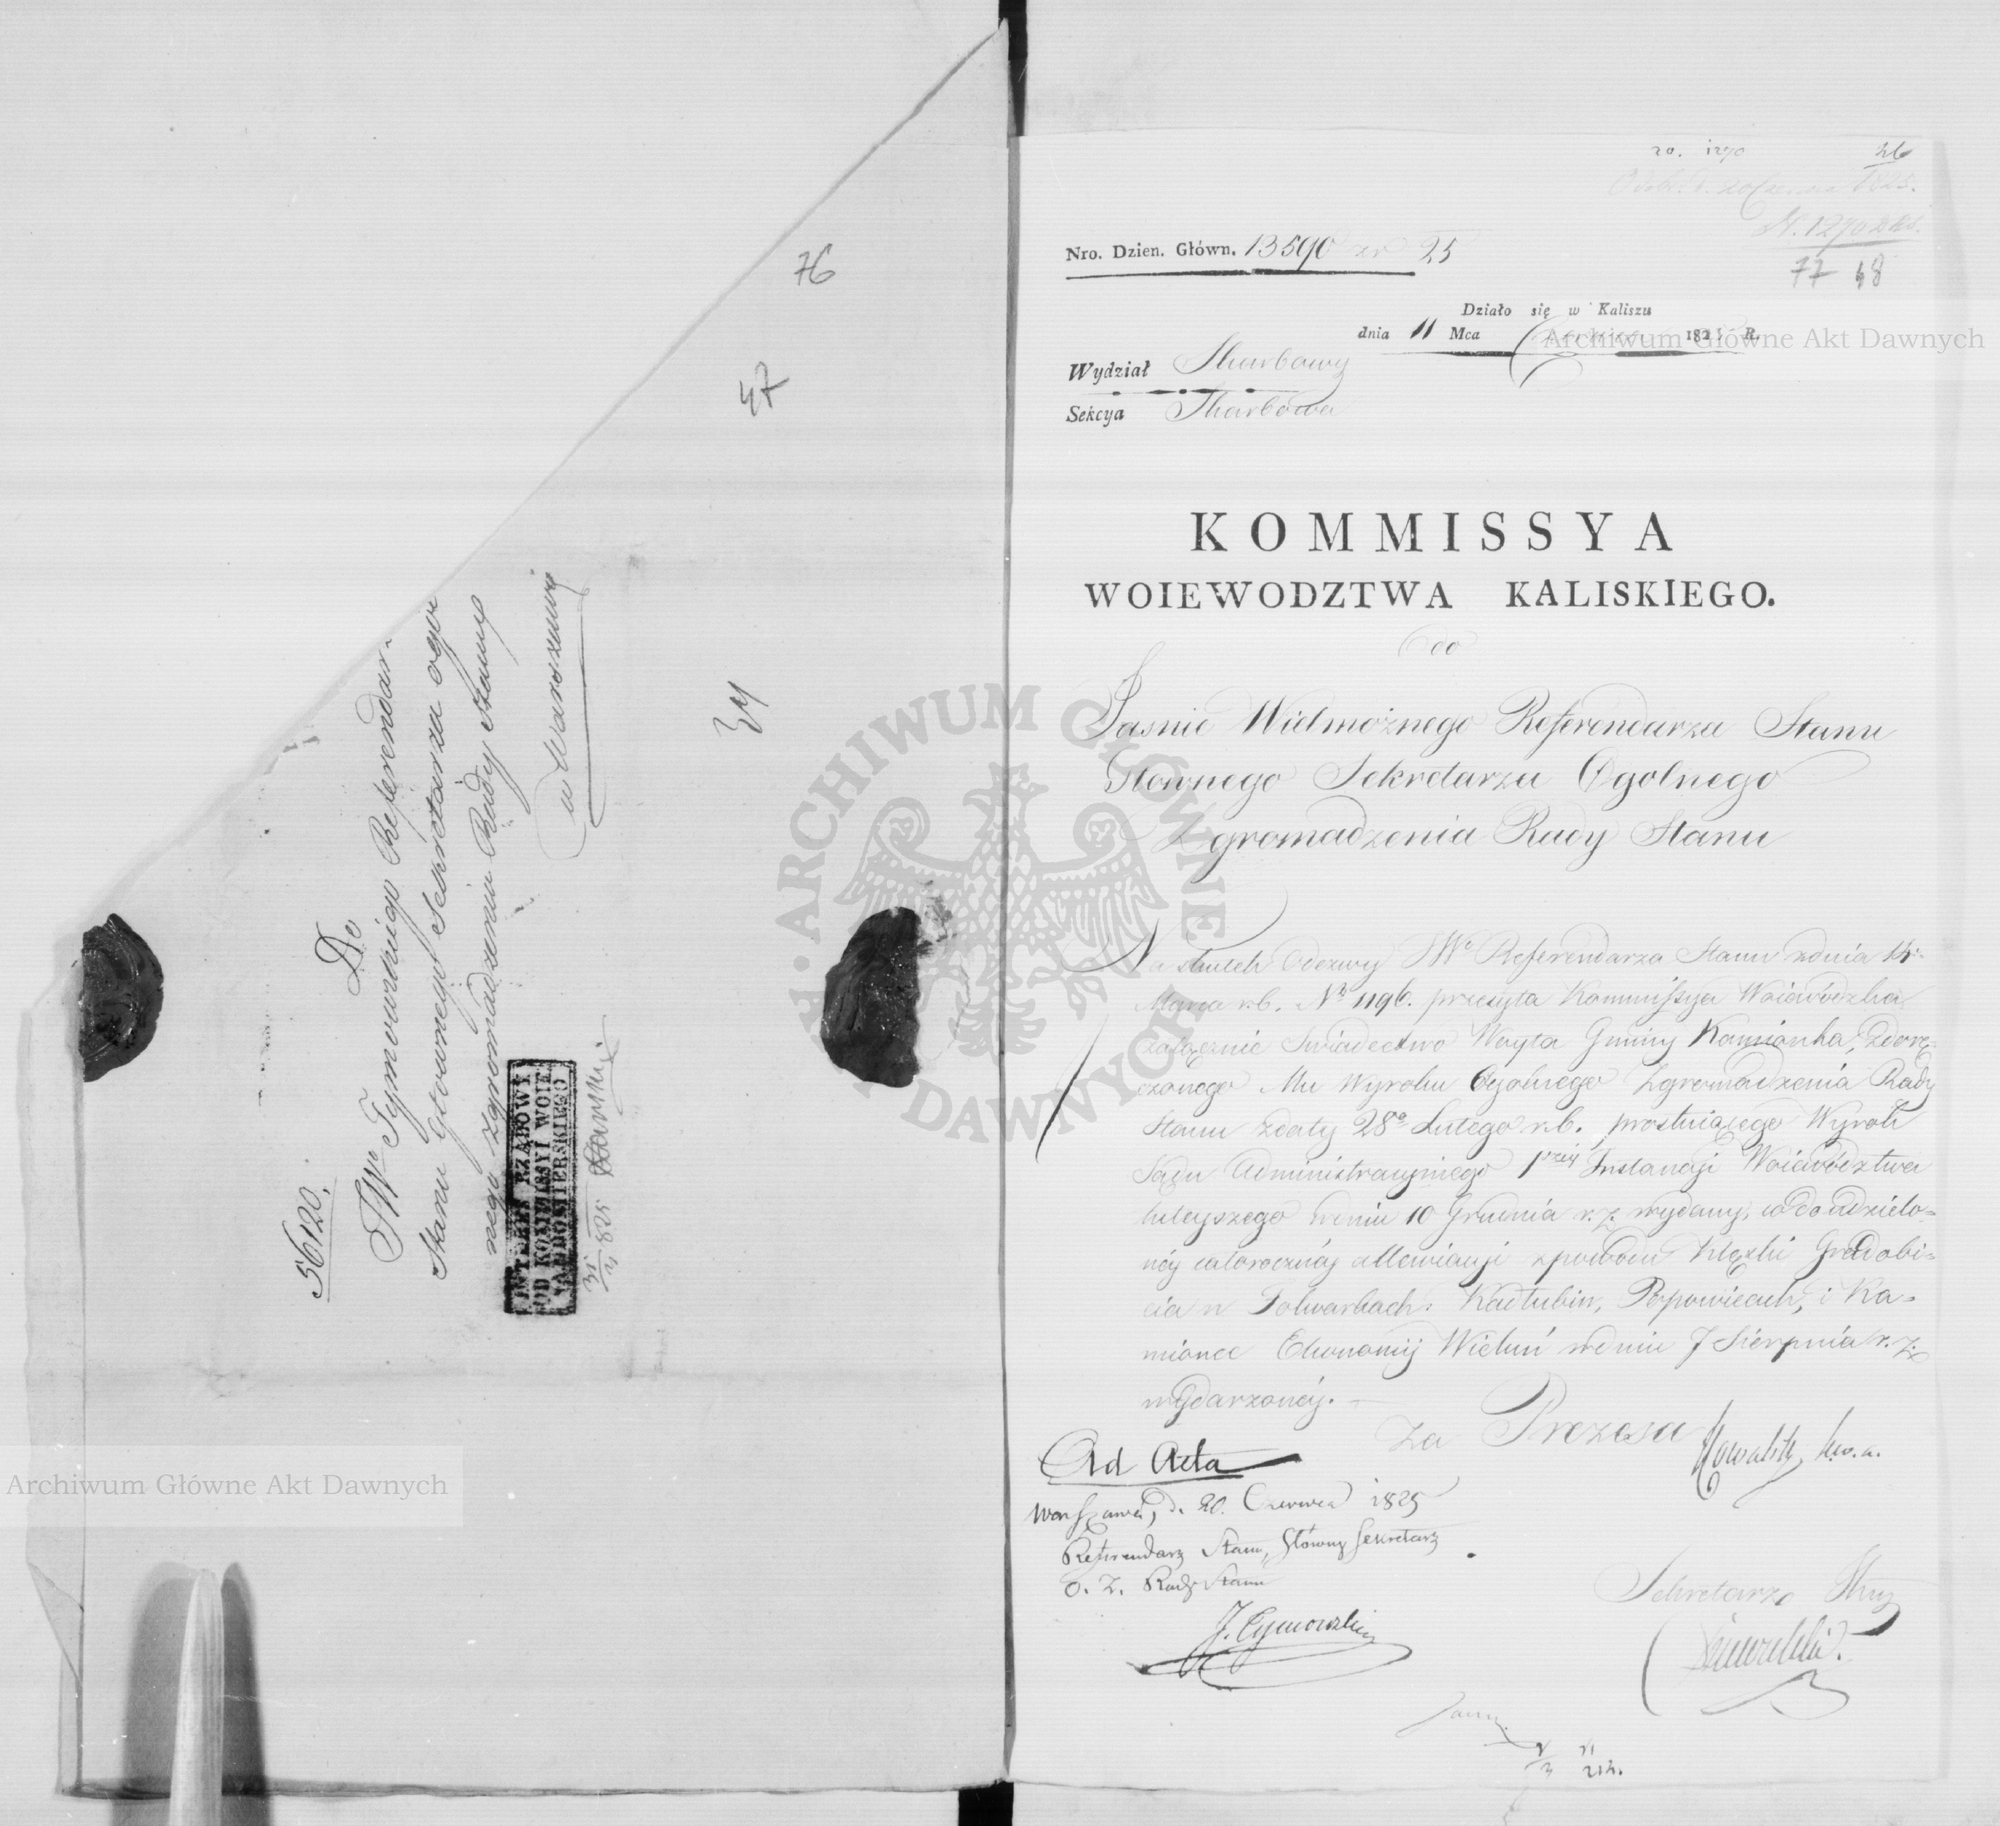 76
47
34
56120.
Do
JWo Tymowskiego Referendar-
Stanu Głownego Sekretarza ogól
nego zgromadzeniu Rady Stanu
w Warszawie
INTERES RZĄDOWY
OD KOMMISSYI WOIE
20. 1270
Nro. Dzien. Główn. 13590 25
N. 1270
77 48
Działo się w Kaliszu
dnia 11 Mca Czerwca 1825 R.
Wydział Skarbowy
Sekcya Skarbowa
KOMMISSYA
WOIEWODZTWA KALISKIEGO.
do
Jasnie Wielmożnego Referendarza Stanu
Głownego Sekretarza Ogolnego
Zgromadzenia Rady Stanu
Na skutek Odezwy JWo Referendarza Stanu z dnia 14
Marca r.b. No 1196. przesyła Kommissya Woiewódzka
załącznie Swiadectwo Woyta Gminy Kamionka, zdorę-
czonego Mu Wyroku Ogolnego Zgromadzenia Rady
Stanu z daty 28o Lutego r.b. prostuiącego Wyrok
Sądu Administracyinego 1szey Instancyi Woiewództwa
tuteyszego w dniu 10 Grudnia r.z. wydany, co do udzielo-
néy całorocznéy allewiacyi z powodu klęski Gradobi-
cia w Folwarkach: Kadłubin, Popowicach, i Ka-
mionce Ekonomij Wieluń w dniu 7 Sierpnia r.z.
wydarzonéy.
Za Prezesa Kowalski
Ad Acta
Warszawa, d. 20. Czerwca 1825
Referendarz Stanu, Główny Sekretarz
O. Z. Rady Stanu
J. Tymowski
Sekretarz
Archiwum Główne Akt Dawnych
Archiwum Główne Akt Dawnych
ARCHIWUM GŁÓWNE AKT DAWNYCH